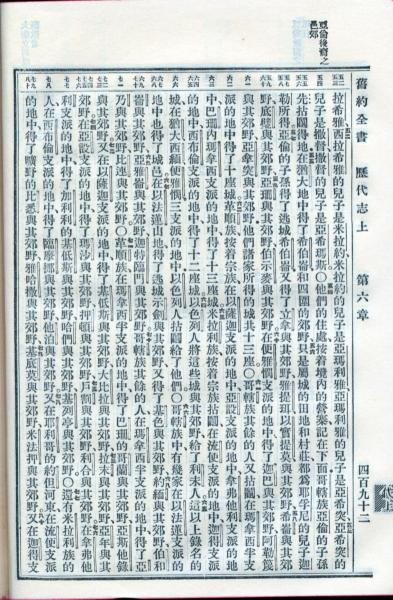 亞倫後裔之
邑郊
舊約全書 歷代志上 第六章 四百九十二
拉希雅西拉希雅的兒子是米拉約米拉約的兒子是亞瑪利雅亞瑪利雅的兒子是亞希突亞希突的
兒子是撒督撒督的兒子是亞希瑪斯○他們的住處按着境內的營寨記在下面哥轄族亞倫的子孫
先拈鬮得地在猶大地中得了希伯崙和四圍的郊野只是屬城的田地和村莊都爲耶孚尼的兒子迦
勒所得亞倫的子孫得了逃城希伯崙又得了立拿與其郊野雅提珥以實提莫與其郊野希崙與其郊
野底璧與其郊野亞珊與其郊野伯示麥與其郊野在便雅憫支派的地中得了迦巴與其郊野阿勒篾
與其郊野亞拿突與其郊野他們諸家所得的城共十三座○哥轄族其餘的人又拈鬮在瑪拿西半支
派的地中得了十座城革順族按着宗族在以薩迦支派的地中亞設支派的地中拿弗他利支派的地
中巴珊內瑪拿西支派的地中得了十三座城米拉利族按着宗族拈鬮在流便支派的地中迦得支派
的地中西布倫支派的地中得了十二座城以色列人將這些城與其郊野給了利未人這以上錄名的
城在猶大西緬便雅憫三支派的地中以色列人拈鬮給了他們○哥轄族中有幾家在以法蓮支派的
地中也得了城邑在以法蓮山地得了逃城示劍與其郊野又得了基色與其郊野約緬與其郊野伯和
崙與其郊野亞雅崙與其郊野迦特臨門與其郊野哥轄族其餘的人在瑪拿西半支派的地中得了亞
乃與其郊野比連與其郊野○革順族在瑪拿西半支派的地中得了巴珊的哥蘭與其郊野亞斯他錄
與其郊野又在以薩迦支派的地中得了基低斯與其郊野大比拉與其郊野拉末與其郊野亞年與其
郊野在亞設支派的地中得了瑪沙與其郊野押頓與其郊野戶割與其郊野利合與其郊野在拿弗他
利支派的地中得了加利利的基低斯與其郊野哈們與其郊野基列亭與其郊野○還有米拉利族的
人在西布倫支派的地中得了臨摩挪與其郊野他泊與其郊野又在耶利哥的約但河東在流便支派
的地中得了曠野的比悉與其郊野雅哈撒與其郊野基底莫與其郊野米法押與其郊野又在迦得支